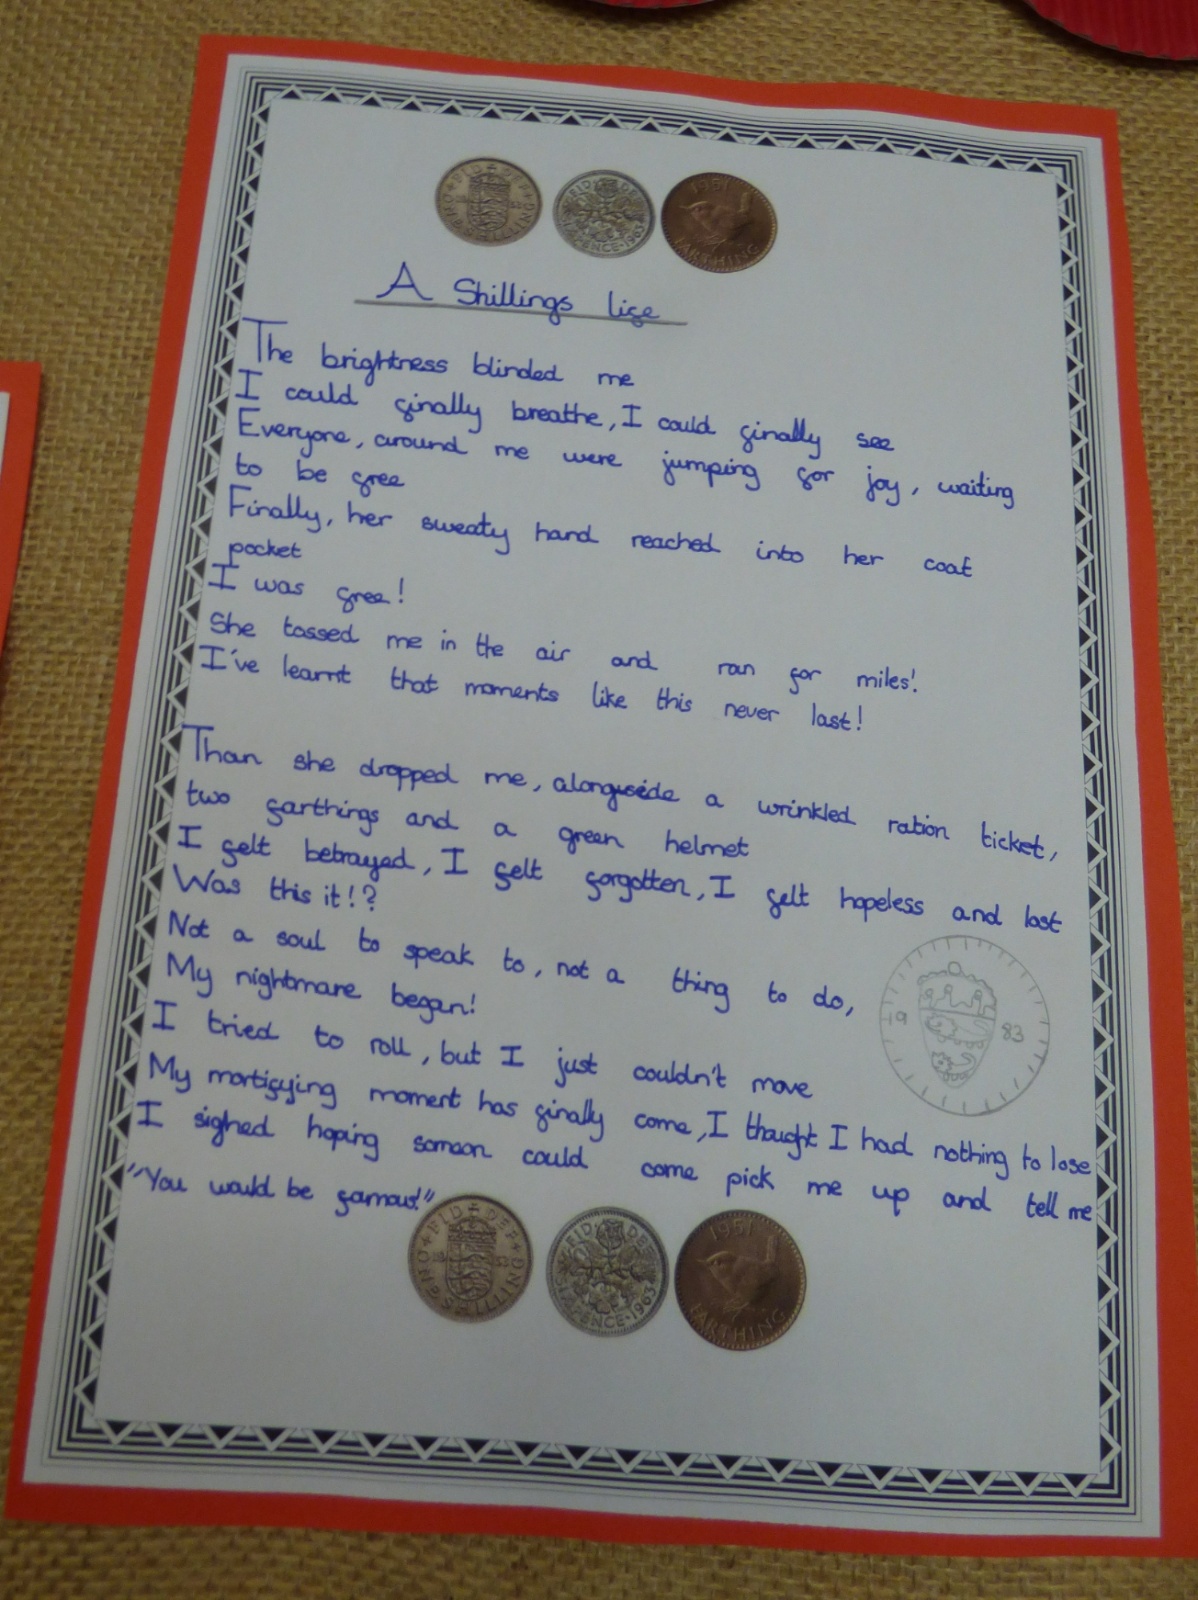 A Shillings life
The brightness blinded me
I could finally breathe, I could finally see
Everyone, around me were jumping for joy, waiting
to be free
Finally, her sweaty hand reached into her coat
pocket
I was free!
She tossed me in the air and ran for miles!
I've learnt that moments like this never last!
Than she dropped me, alongside a wrinkled ration ticket,
two farthings and a green helmet
I felt betrayed, I felt forgotten, I felt hopeless and lost
Was this it!?
Not a soul to speak to, not a thing to do,
My nightmare began!
I tried to roll, but I just couldn't move
My mortifying moment has finally come, I thought I had nothing to lose
I sighed hoping somoon could come pick me up and tell me
"You would be famous!"
19 83
FID DEF
ONE SHILLING
FID DEF
SIXPENCE 1963
1951
FARTHING
FID DEF
ONE SHILLING
FID DEF
SIXPENCE 1963
1951
FARTHING